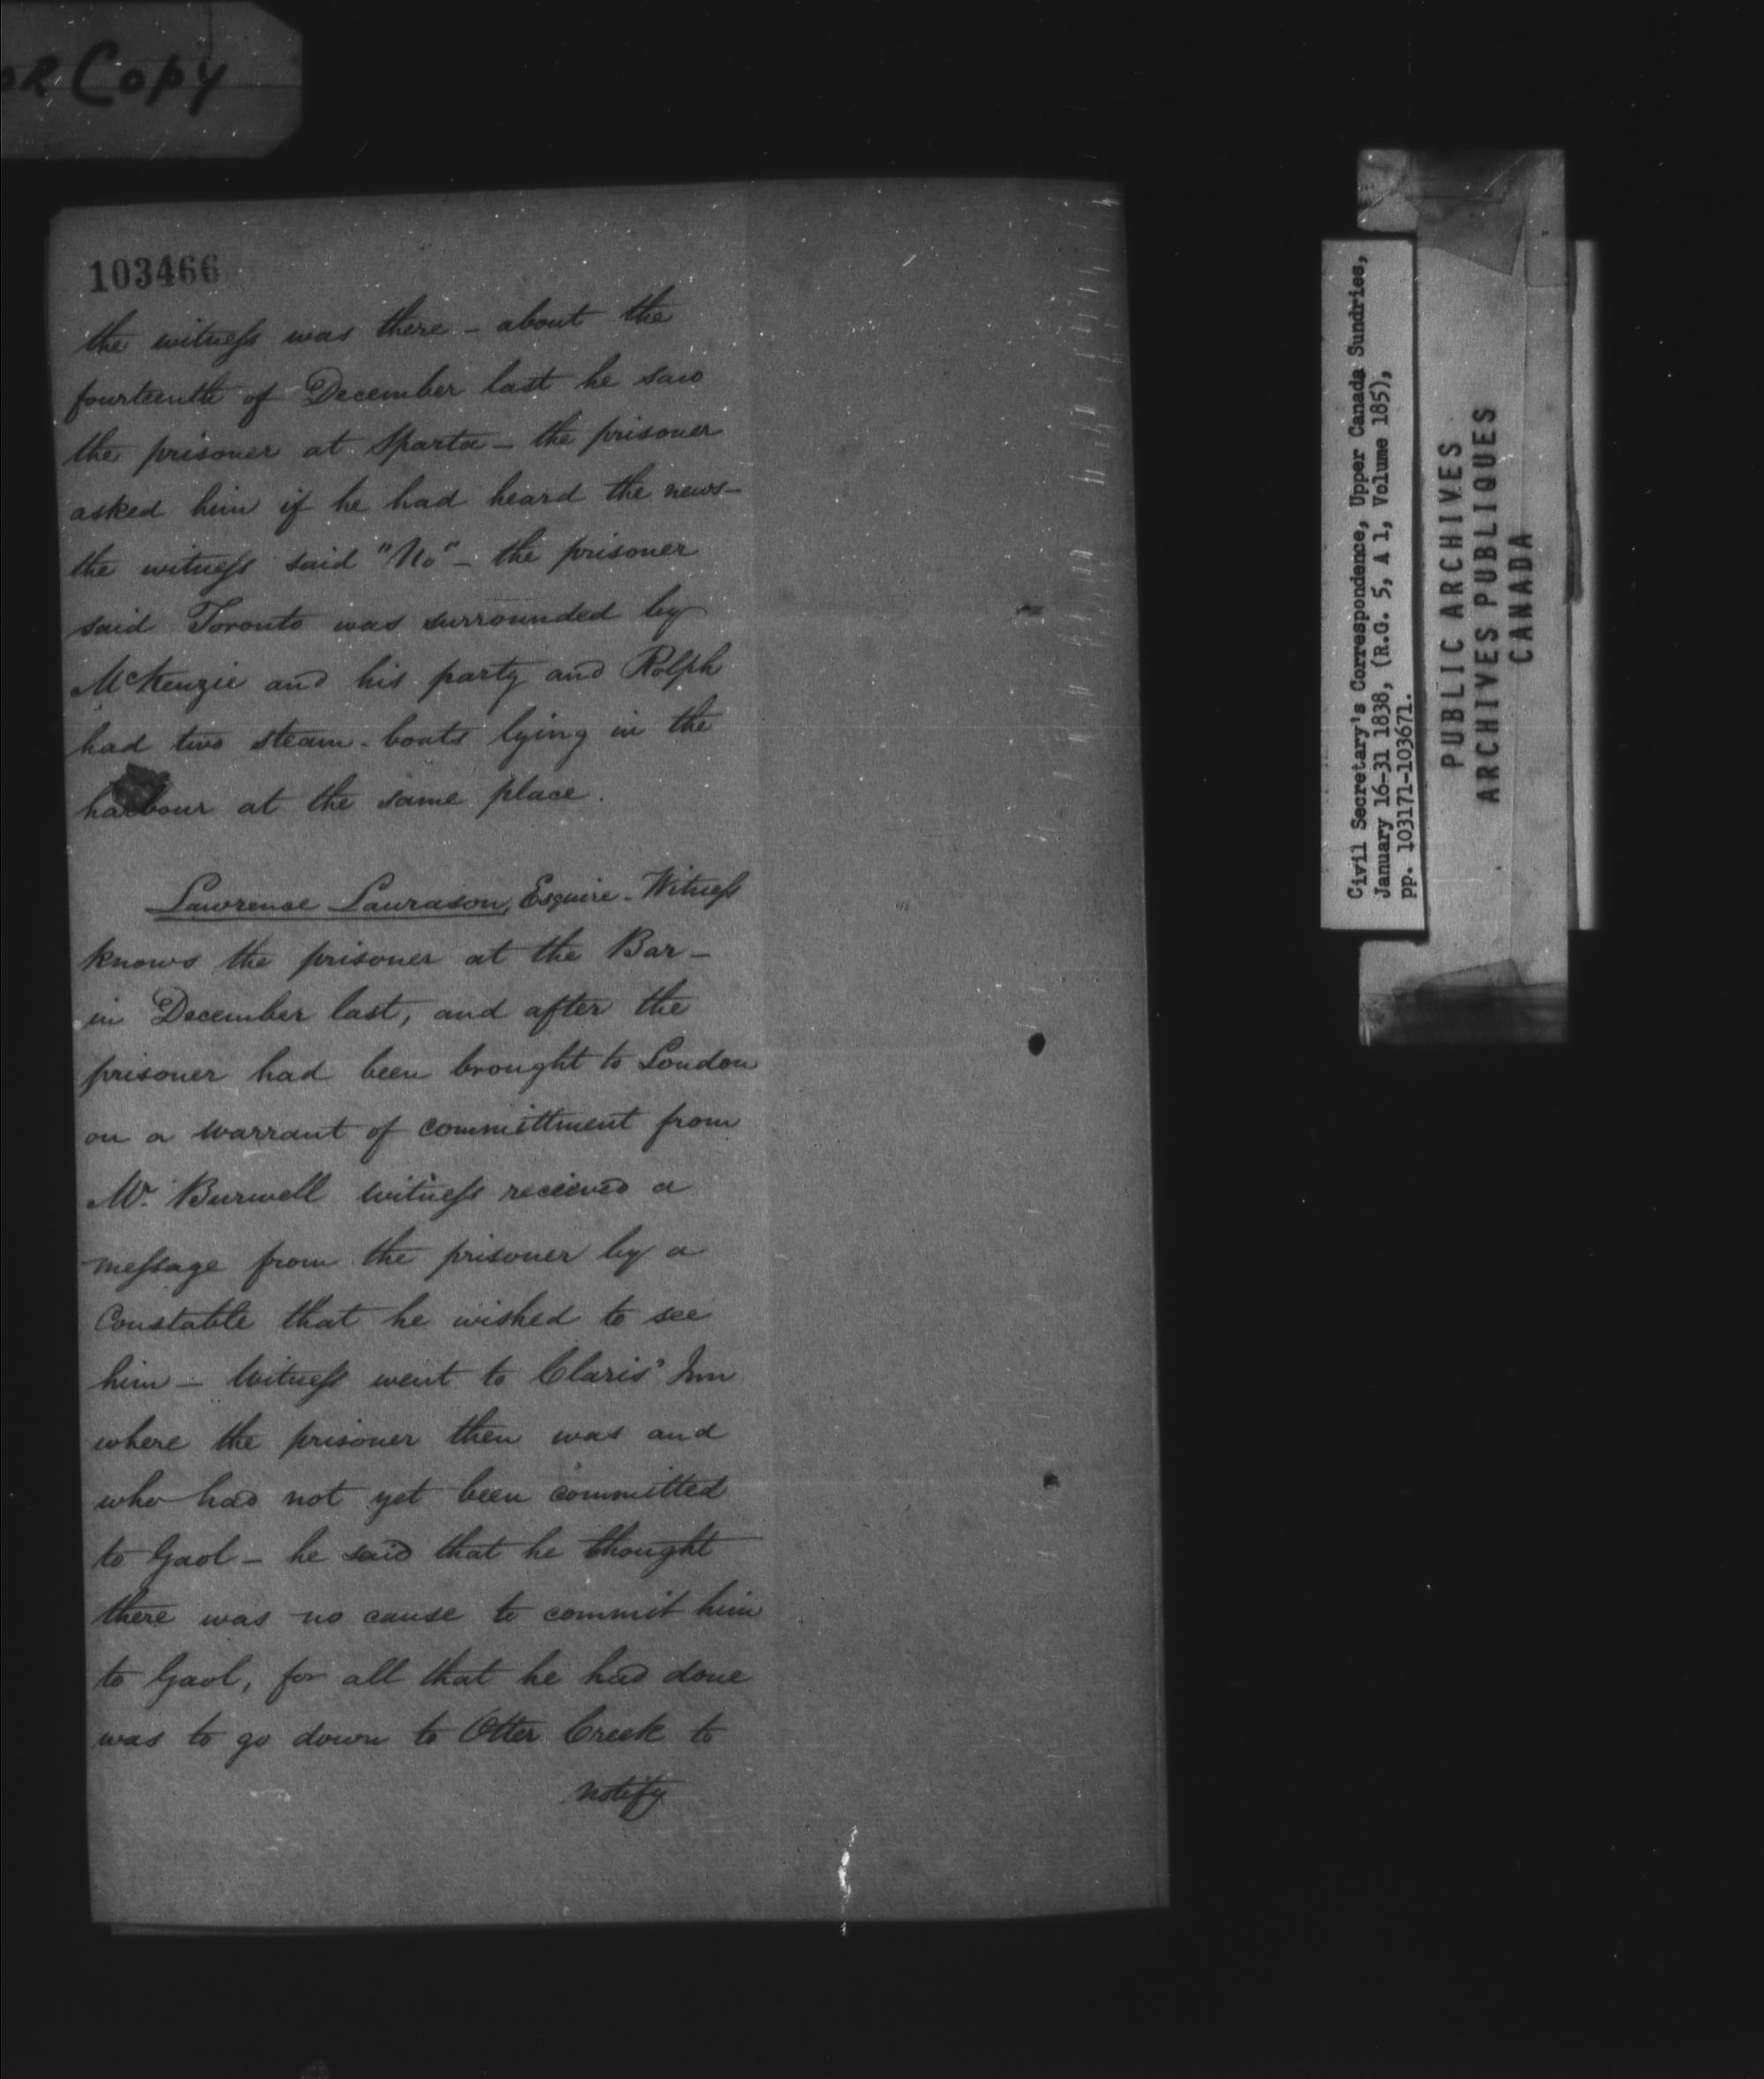 or Copy
103466
the witness was there – about the
fourteenth of December last he saw
the prisoner at Sparta – the prisoner
asked him if he had heard the news –
the witness said "No" – the prisoner
said Toronto was surrounded by
McKenzie and his party and Rolph
had two steam-boats lying in the
harbour at the same place.
Lawrence Laurason, Esquire – Witness
knows the prisoner at the Bar –
in December last, and after the
prisoner had been brought to London
on a warrant of committment from
Mr. Burwell witness recieved a
message from the prisoner by a
Constable that he wished to see
him – Witness went to Claris' Inn
where the prisoner then was and
who had not yet been committed
to Gaol – he said that he thought
there was no cause to commit him
to Gaol, for all that he had done
was to go down to Otter Creek to
notify
Civil Secretary's Correspondence, Upper Canada Sundries,
January 16-31 1838, (R.G. 5, A 1, Volume 185),
pp. 103171-103671.
PUBLIC ARCHIVES
ARCHIVES PUBLIQUES
CANADA